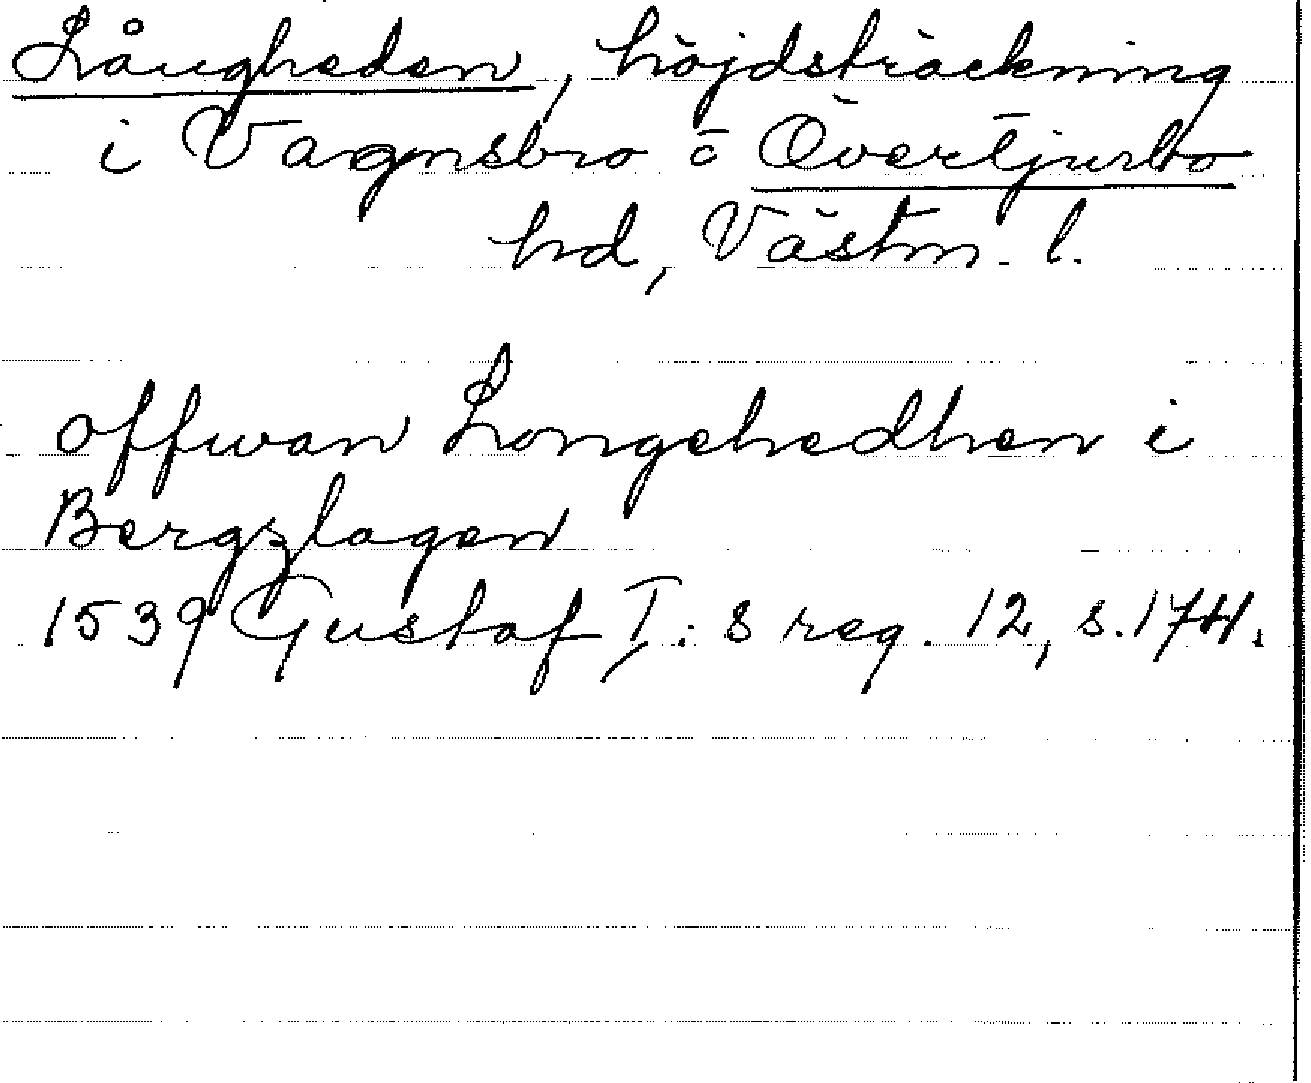 Långheden, höjdsträckning
i Vagnsbro o Övertjurbo
hd, Västm. l.
offwan Longehedhen i
Bergzlagen
1539 Gustaf I: s reg. 12, s. 174.